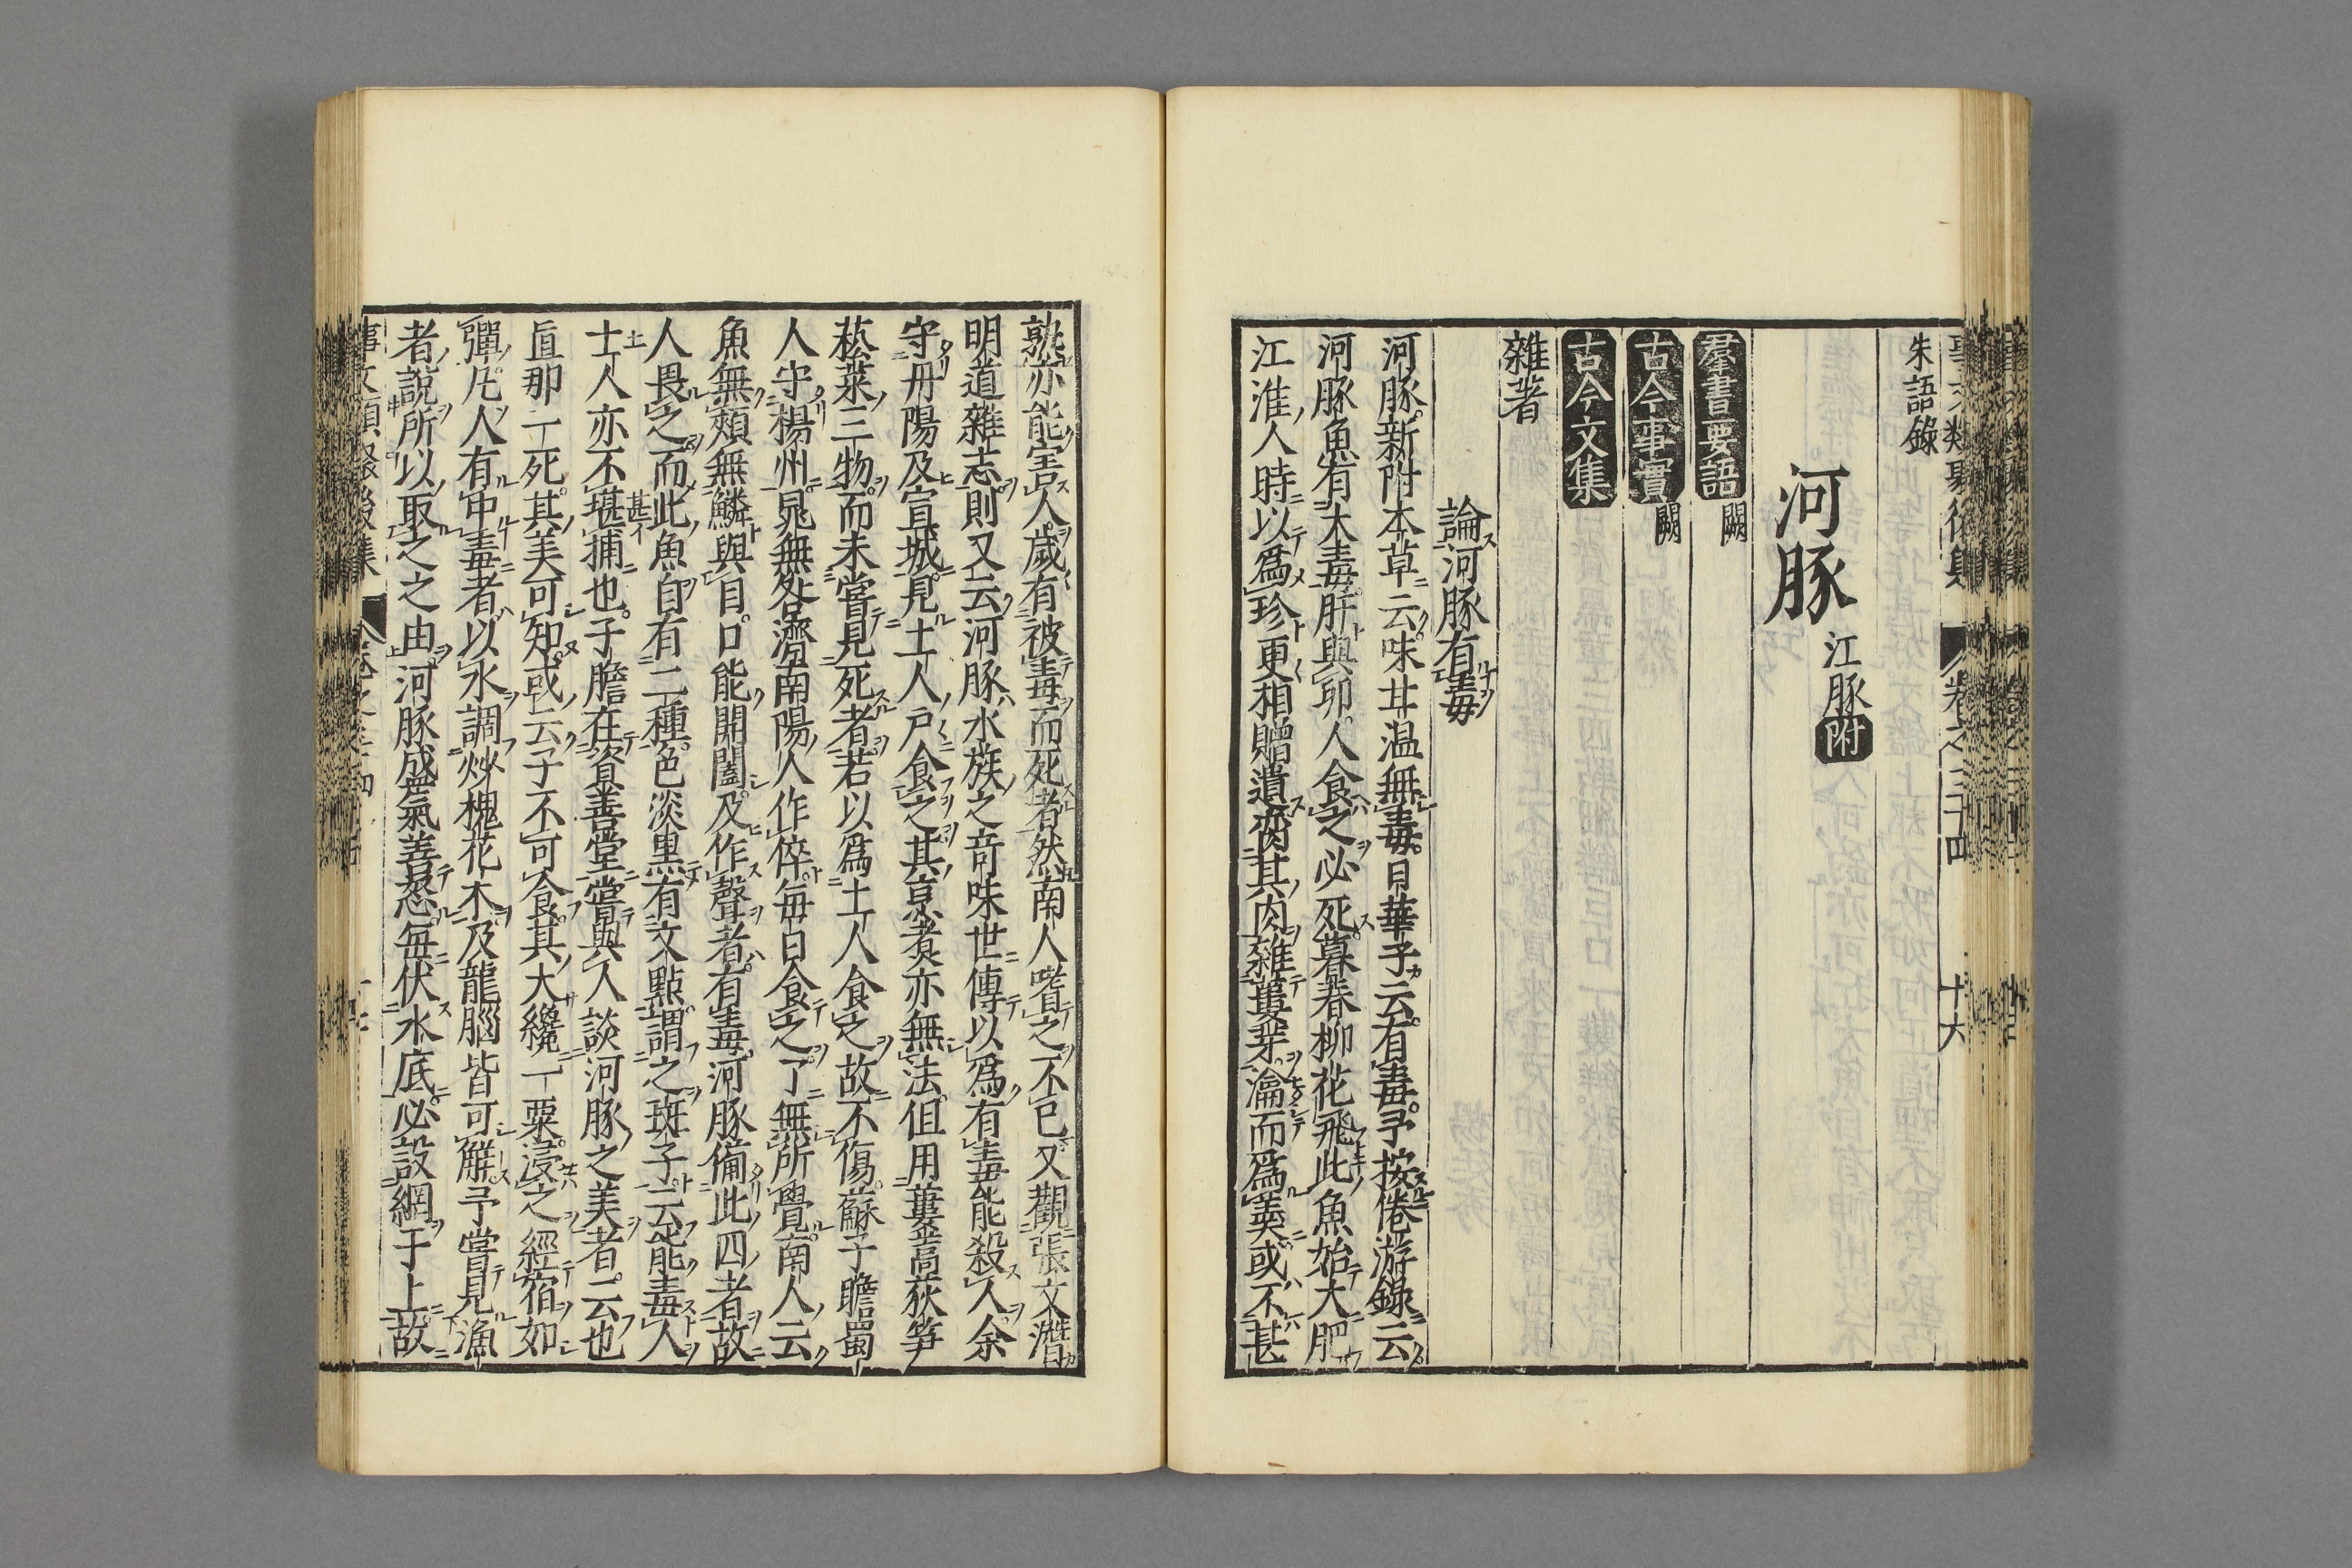 朱語錄
河豚 江豚附
羣書要語 闕
古今事實 闕
古今文集
雜著
論河豚有毒
河豚新附本草云味甘温無毒日華子云有毒予按倦游録云
河豚魚有大毒肝與卵人食之必死暮春柳花飛此魚始大肥
江淮人時以爲珍更相贈遺臠其肉雜蔞芽瀹而爲羹或不甚
熟亦能害人歲有被毒而死者然南人嗜之不已又觀張文潛
明道雜志則又云河豚水族之奇味世傳以爲有毒能殺人余
守丹陽及宣城見土人戶食之其烹煑亦無法但用蔞蒿荻笋
菘菜三物而未嘗見死者若以爲土人食之故不傷蘇子瞻蜀
人守楊州晁無咎濟南陽人作倅每日食之了無所覺南人云
魚無頰無鱗與目口能開闔及作聲者有毒河豚備此四者故
人畏之而此魚自有二種色淡黑有文點謂之斑子云能毒人
土人亦不甚捕也子瞻在資善堂嘗與人談河豚之美者云也
直那一死其美可知或云子不可食其大纔一粟浸之經宿如
彈凡人有中毒者以水調炒槐花木及龍腦皆可解予嘗見漁
者說所以取之之由河豚盛氣善怒每伏水底必設網于上故